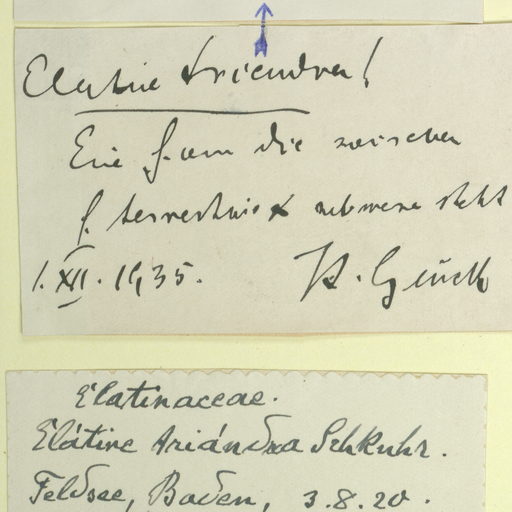 Elatine triandra!
Eine Form die zwischen
f. terrestris & submersa steht
1. XII. 1935. H. Glück
Elatinaceae.
Elátine triándra Schkuhr.
Feldsee, Baden, 3.8.20.